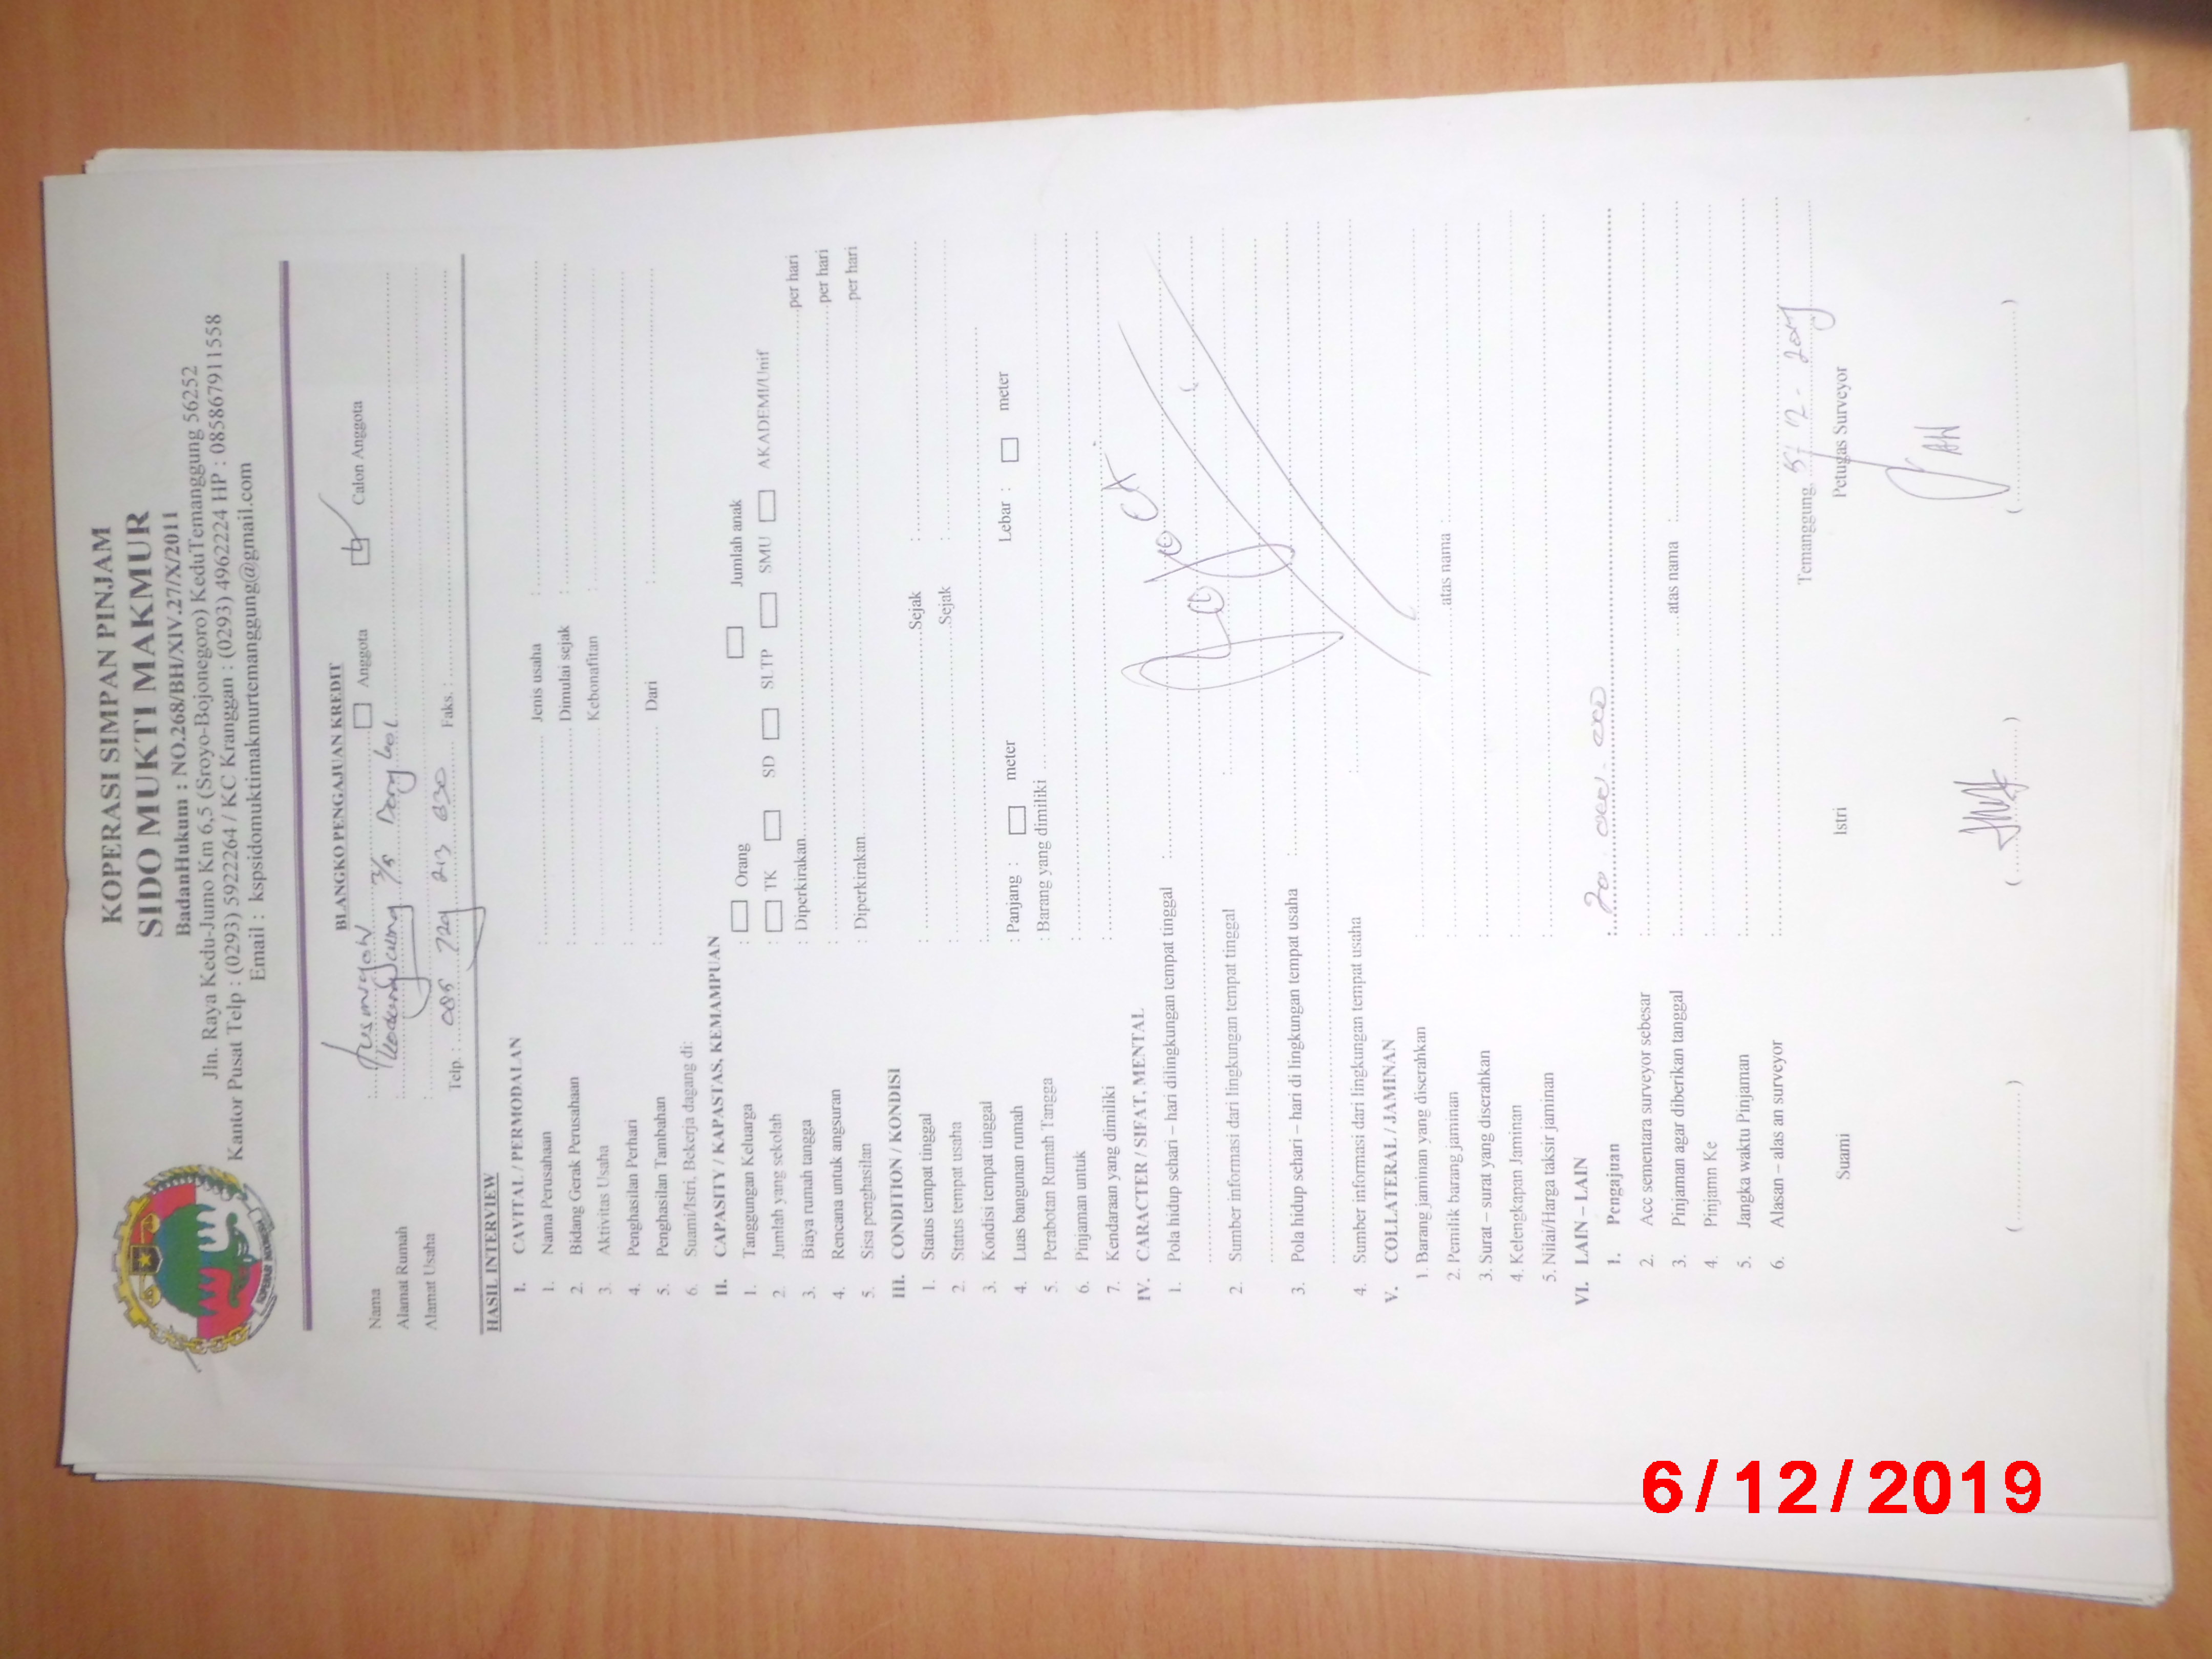 KOPERASI SIMPAN PINJAM
SIDO MUKTI MAKMUR
BadanHukum : NO.268/BH/XIV.27/X/2011
Jln. Raya Kedu-Jumo Km 6,5 (Sroyo-Bojonegoro) KeduTemanggung 56252
Kantor Pusat Telp : (0293) 5922264 / KC Kranggan : (0293) 4962224 HP : 085867911558
Email : kspsidomuktimakmurtemanggung@gmail.com
KOPERASI INDONESIA
BLANGKO PENGAJUAN KREDIT
Nama : Anggota Calon Anggota
Alamat Rumah : 3/5
Alamat Usaha :
Telp. : 085 729 213 630 Faks. :
HASIL INTERVIEW
I. CAVITAL / PERMODALAN
1. Nama Perusahaan : Jenis usaha :
2. Bidang Gerak Perusahaan : Dimulai sejak :
3. Aktivitas Usaha : Kebonafitan :
4. Penghasilan Perhari :
5. Penghasilan Tambahan : Dari :
6. Suami/Istri, Bekerja dagang di:
II. CAPASITY / KAPASTAS, KEMAMPUAN
1. Tanggungan Keluarga : Orang Jumlah anak
2. Jumlah yang sekolah : TK SD SLTP SMU AKADEMI/Unif
3. Biaya rumah tangga : Diperkirakan per hari
4. Rencana untuk angsuran : per hari
5. Sisa penghasilan : Diperkirakan per hari
III. CONDITION / KONDISI
1. Status tempat tinggal : Sejak :
2. Status tempat usaha : Sejak :
3. Kondisi tempat tinggal :
4. Luas bangunan rumah : Panjang : meter Lebar : meter
5. Perabotan Rumah Tangga : Barang yang dimiliki
6. Pinjaman untuk :
7. Kendaraan yang dimiliki :
IV. CARACTER / SIFAT, MENTAL
1. Pola hidup sehari – hari dilingkungan tempat tinggal :
2. Sumber informasi dari lingkungan tempat tinggal :
3. Pola hidup sehari – hari di lingkungan tempat usaha :
4. Sumber informasi dari lingkungan tempat usaha :
V. COLLATERAL / JAMINAN
1. Barang jaminan yang diserahkan :
2. Pemilik barang jaminan : atas nama :
3. Surat – surat yang diserahkan :
4. Kelengkapan Jaminan :
5. Nilai/Harga taksir jaminan :
VI. LAIN – LAIN
1. Pengajuan : 20.000.000
2. Acc sementara surveyor sebesar :
3. Pinjaman agar diberikan tanggal : atas nama :
4. Pinjamn Ke :
5. Jangka waktu Pinjaman :
6. Alasan – alas an surveyor :
Temanggung, 5/12-2019
Suami Istri Petugas Surveyor
6/12/2019